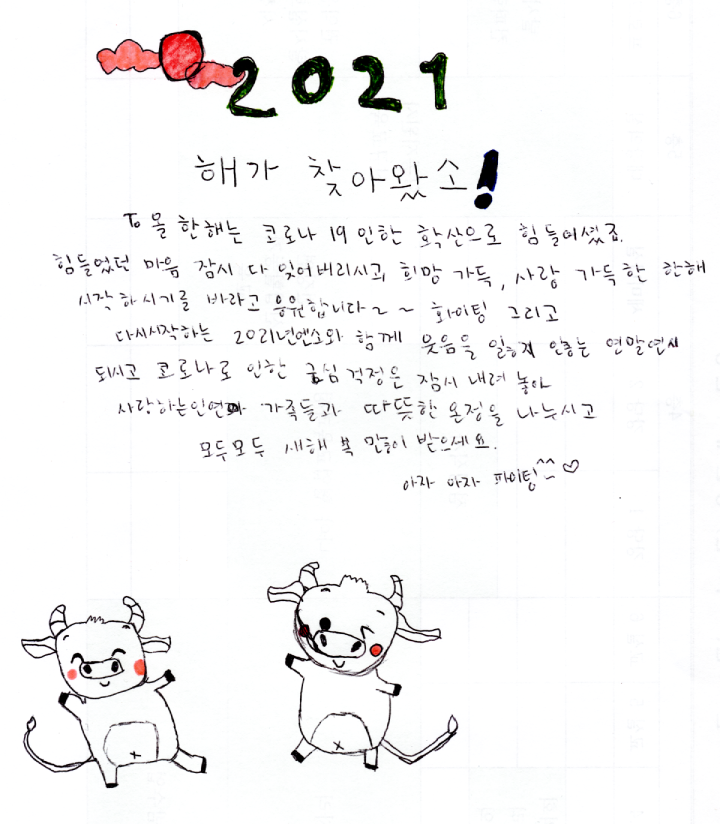 2021
해가 찾아왔소!
To 올 한해는 코로나 19 인한 확산으로 힘들어셨죠.
힘들었던 마음 잠시 다 잊어버리시고, 희망 가득, 사랑 가득한 한해
시작하시기를 바라고 응원합니다~~ 화이팅 그리고
다시시작하는 2021년엔소와 함께 웃음을 잃하지 안흥는 연말연시
되시고 코로나로 인한 근심 걱정은 잠시 내려 놓아
사랑하는인연과 가족들과 따뜻한 온정을 나누시고
모두모두 새해 복 많이 받으세요.
아자 아자 파이팅^^ ♡